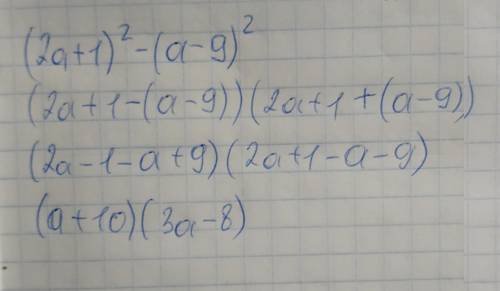 (2a+1)²-(a-9)²
(2a+1-(a-9))(2a+1+(a-9))
(2a-1-a+9)(2a+1-a-9)
(a+10)(3a-8)